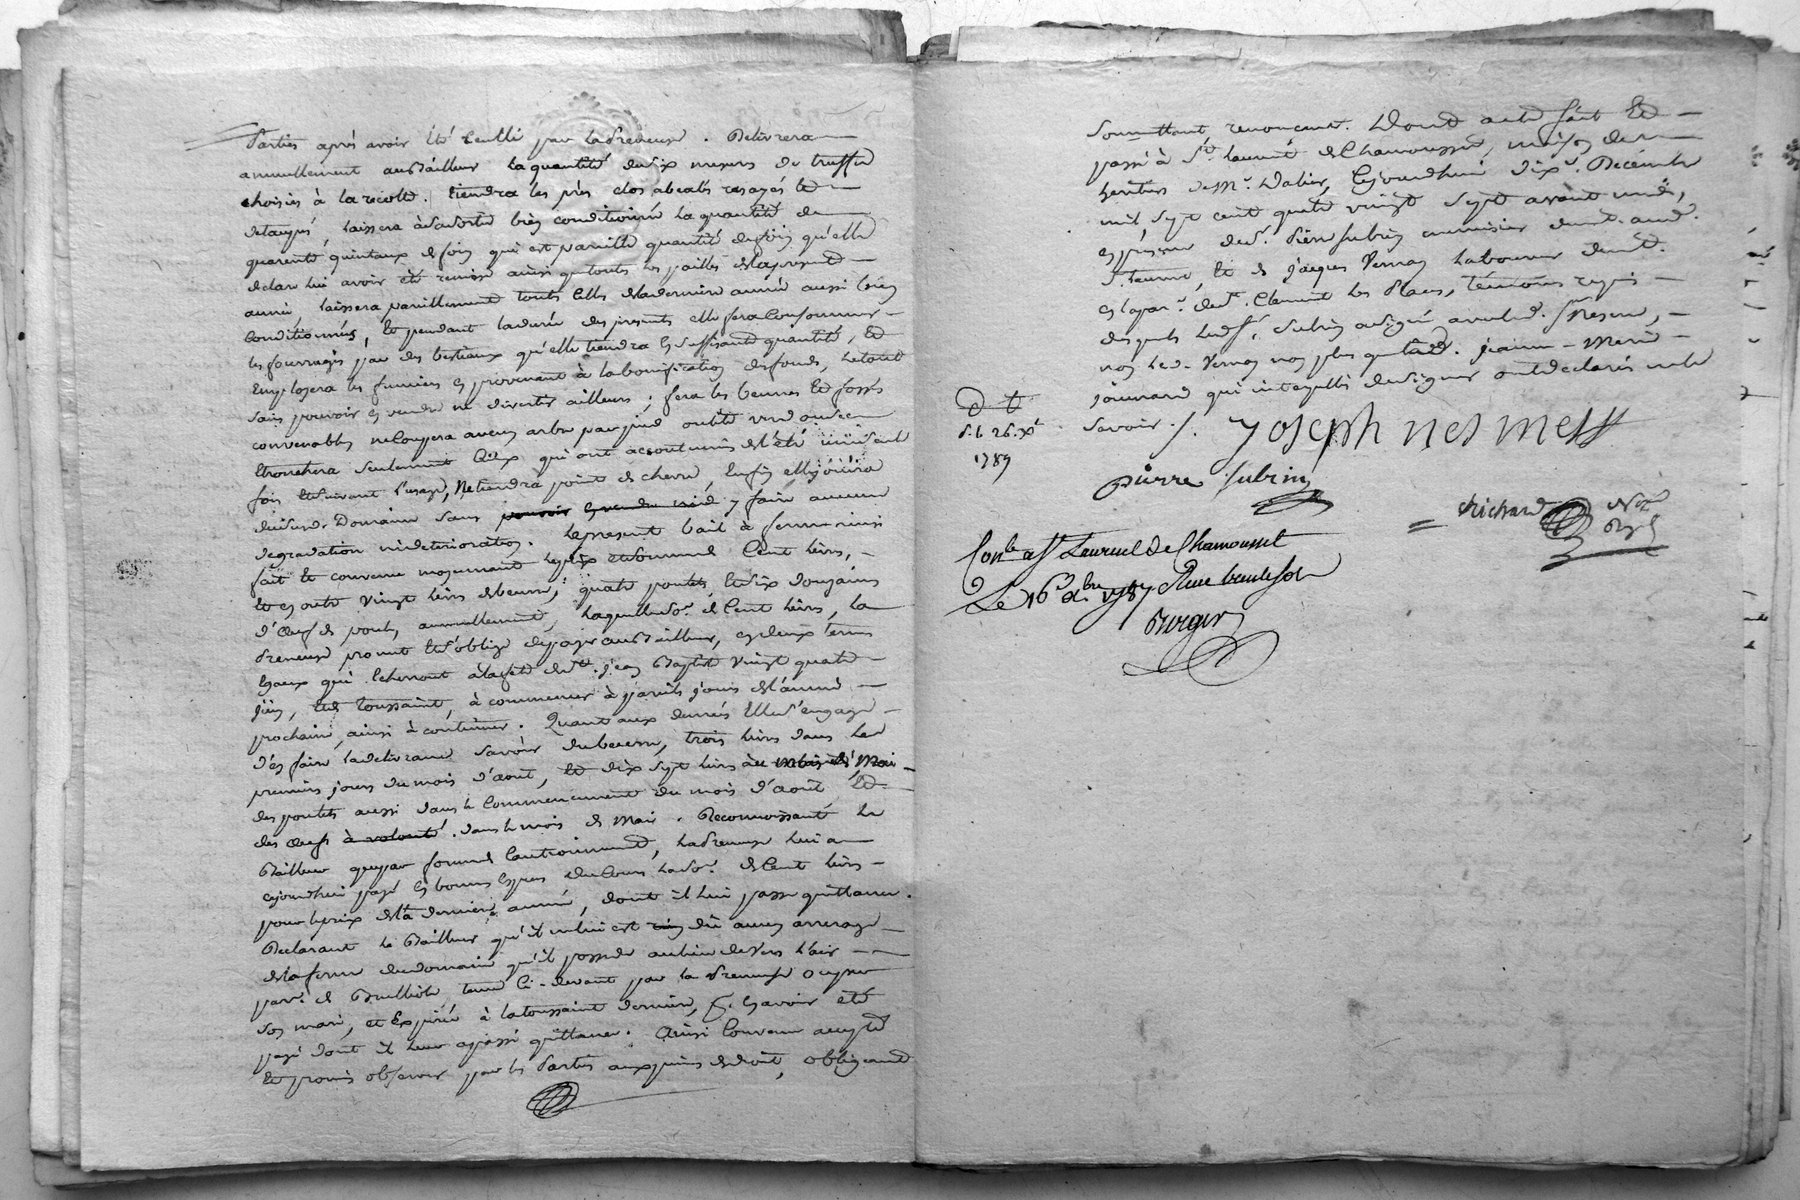 Parties après avoir été Ceulli par la Preneuse. Delivrera
annuellement au Bailleur la quantité de dix mesures de truffes
choisies à la recolte. tiendra les près clos abealés rasayés et
detaupés, laissera à sa sortie bien conditionné la quantité de
quarente quintaux de foin qui est pareille quantité de foin qu'elle
declare lui avoir été remise ainsi que toutes les pailles de la presente
année, laissera pareillement toutes celles de la derniere année aussi bien
Conditionnées, Et pendant la durée des presentes elle fera Consommer
les fourrages par des bestiaux qu'elle tiendra en suffisante quantité, Et
Employera les fumiers en provenant à la bonification des fonds, le tout
sans pouvoir en vendre ne divertir ailleurs; fera les bennes Et fossés
convenables ne Coupera aucun arbre par pied outête verd ou sec
Etronchera seulement Ceux qui ont acoutumés de l'été
fois et suivant l'usage, Ne tiendra point de chevre, Enfin elle jouira
dudit Domaine sans pouvoir y faire aucune
degradation ni deterioration. Le present bail à ferme ainsi
fait Et convenu moyennant le prix et somme de Cent livres,
Et en outre vingt livres de beurre, quatre poulets, Et six douzaines
d'œufs de poules annuellement, laquelle so.e de Cent livres, la
Preneuse promet Et s'oblige de payer au Bailleur, en deux termes
Egaux qui Echerront à la fête de St. Jean Baptiste vingt quatre
juin, Et de Toussaint, à commencer à pareils jours de l'année
prochaine, ainsi à continuer. Quant aux denrées Elle s'engage
d'en faire la delivrance savoir du beurre, trois livres dans les
premiers jours du mois d'août, Et dix sept livres au mois de Mai
des poulets aussi dans le Commencement du mois d'août Et
des œufs à volonté. dans le mois de Mai. Reconnoissant le
Bailleur que par forme de Cautionnement, la Preneuse lui a
cejourdhui payé en bonnes Espèces du Cours la so.e de Cent livres
pour le prix de la derniere année, dont il lui passe quittance.
Declarant le Bailleur qu'il ne lui est rien dû aucun arrerage
de la ferme du domaine qu'il possede au lieu de Vers l'air
par.se de Brullioles, tenue Ci-devant par la Preneuse ou par
son mari, et Expirée à la toussaint derniere, En avoir été
payé dont il leur a passé quittance. Ainsi Convenu accepté
Et promis observer par les Parties aux peines de droit, obligeant
Soumettant, renonçant. Dont acte fait Et
passé à St. Laurent de Chamousset, maison des
heritiers de Mr. Dalier, Cejourdhui dix.e Decembre
mil, sept cent quatre vingt sept avant midi,
en presence de Sr. Pierre Subrin
St. Laurent, Et de Jacques Vernay laboureur
en la par.se de St. Clement les Places, témoins requis
desquels led. Sr. Subrin a signé avec led. Sr. Nesme,
non led. Vernay non plus que lad. Jeanne-Marie
jouinard qui interpellés de signer ont declarés ne le
savoir./.
D t
1789
yoseph nesmess
pierre subrin
Richard Nre
Ryal
Con.lé a St Laurent de Chamousset
Le 16 Xbre 1787
Burger